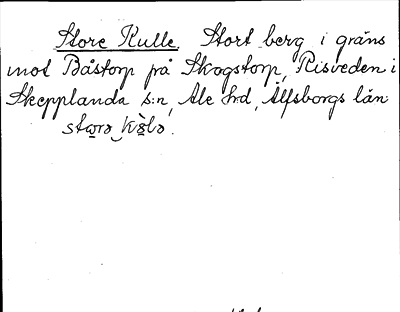 Store Kulle. Stort berg i gräns
mot Båstorp på Skogstorp, Risveden i
Skepplanda s:n, Ale hrd, Älfsborgs län.